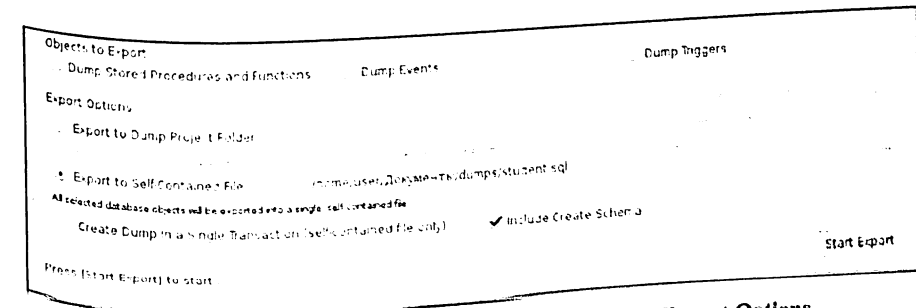 Objects to Export
Dump Stored Procedures and Functions Dump Events Dump Triggers
Export Options
Export to Dump Project Folder
Export to Self-Contained File /home/user/Документы/dumps/student.sql
All selected database objects will be exported into a single, self-contained file.
Create Dump in a Single Transaction (self-contained file only) ✔ Include Create Schema
Start Export
Press [Start Export] to start
Options